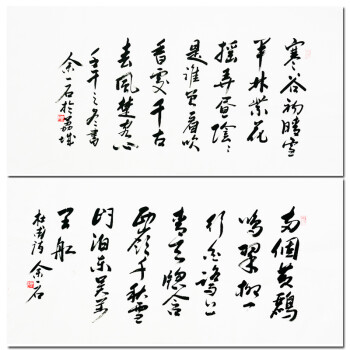 寒谷初晴雪
半林紫花
摇弄昼陰々
是誰吹
香雪千古
春風楚客心
壬午之冬書
余一石於荔城
两個黄鹂
鸣翠柳一
行白鹭上
青天窗含
西嶺千秋雪
门泊東吴万
里船
杜甫诗 余一石